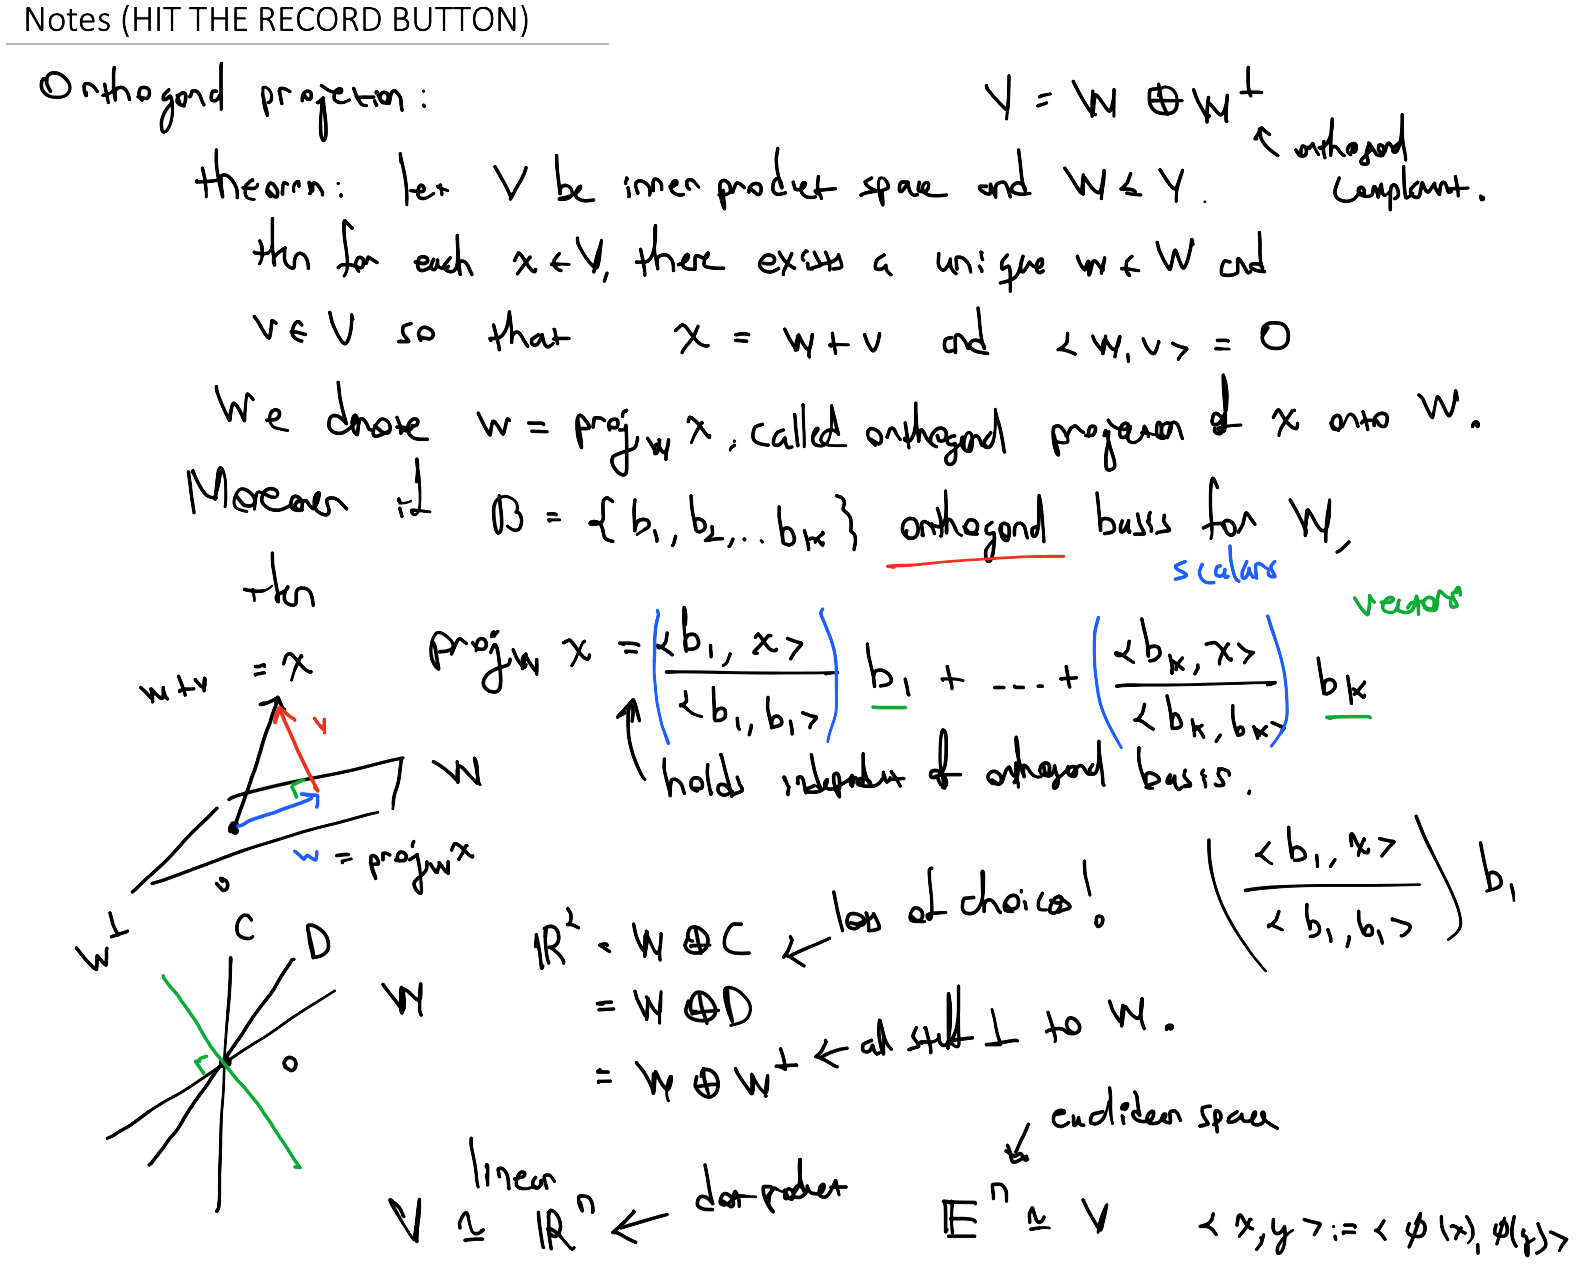 Notes (HIT THE RECORD BUTTON)
Orthogonal projection:
V = W ⊕ W^⊥
orthogonal
complement.
theorem: let V be inner product space and W ≤ V.
then for each x ∈ V, there exists a unique w ∈ W and
v ∈ V so that x = w + v and <w, v> = 0
We denote w = proj_W x, called orthogonal projection of x onto W.
Moreover if B = {b_1, b_2, .. b_k} orthogonal basis for W,
scalars
then
vectors
proj_W x = (<b_1, x> / <b_1, b_1>) b_1 + .... + (<b_k, x> / <b_k, b_k>) b_k
w+v = x
v
W
holds independent of orthogonal basis.
w = proj_W x
0
(<b_1, x> / <b_1, b_1>) b_1
W^⊥ C D W
0
ℝ^2 = W ⊕ C ← lots of choices!
= W ⊕ D
= W ⊕ W^⊥ ← all stuff ⊥ to W.
euclidean space
linear
V ≃ ℝ^n ← dot product
𝔼^n ≃ V
<x, y> := <φ(x), φ(y)>